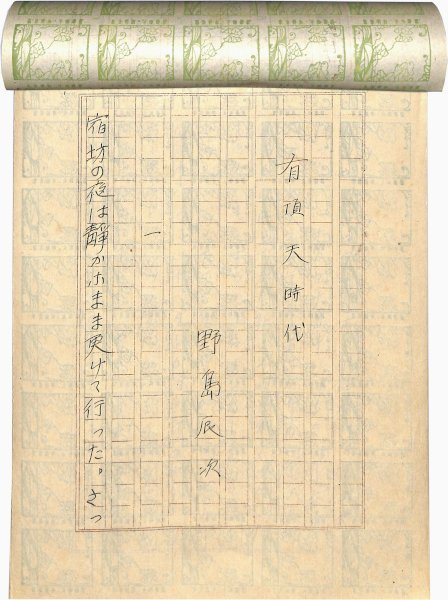 有頂天時代
野島辰次
一
宿坊の夜は靜かなまま更けて行った。さっ